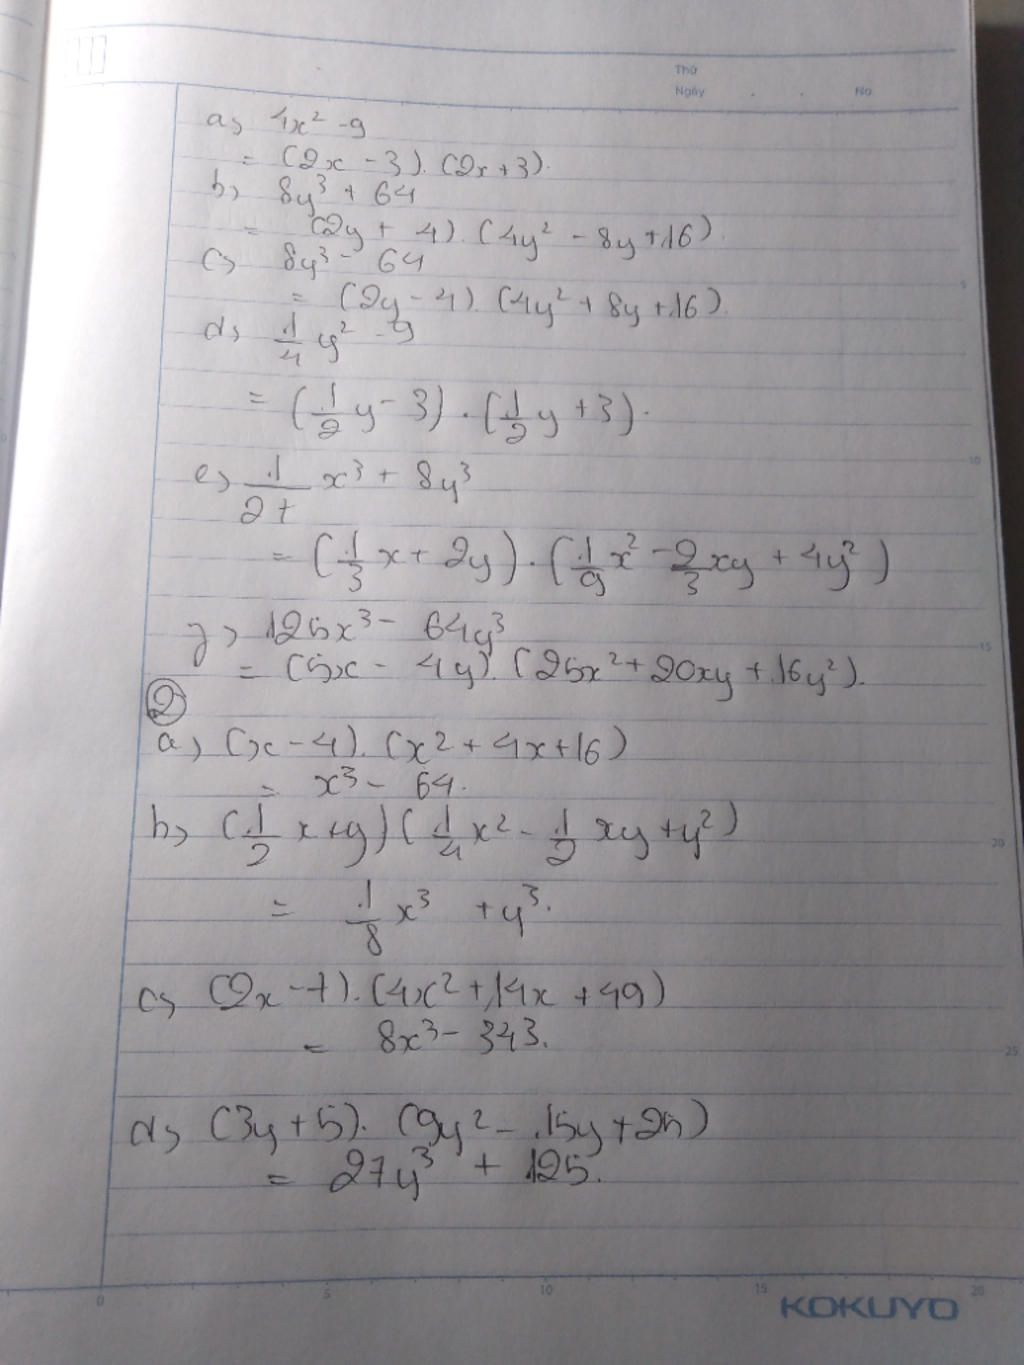 Thứ
Ngày . . No
a, 4x² - 9
= (2x - 3).(2x + 3).
b, 8y³ + 64
= (2y + 4).(4y² - 8y + 16).
c, 8y³ - 64
= (2y - 4).(4y² + 8y + 16).
d, 1/4 y² - 9
= (1/2 y - 3).(1/2 y + 3).
e, 1/27 x³ + 8y³
= (1/3 x + 2y).(1/9 x² - 2/3 xy + 4y²)
f, 125x³ - 64y³
= (5x - 4y).(25x² + 20xy + 16y²).
②
a, (x - 4).(x² + 4x + 16)
= x³ - 64.
b, (1/2 x + y)(1/4 x² - 1/2 xy + y²)
= 1/8 x³ + y³.
c, (2x - 7).(4x² + 14x + 49)
= 8x³ - 343.
d, (3y + 5).(9y² - 15y + 25)
= 27y³ + 125.
5
10
15
20
25
0 5 10 15 20
KOKUYO